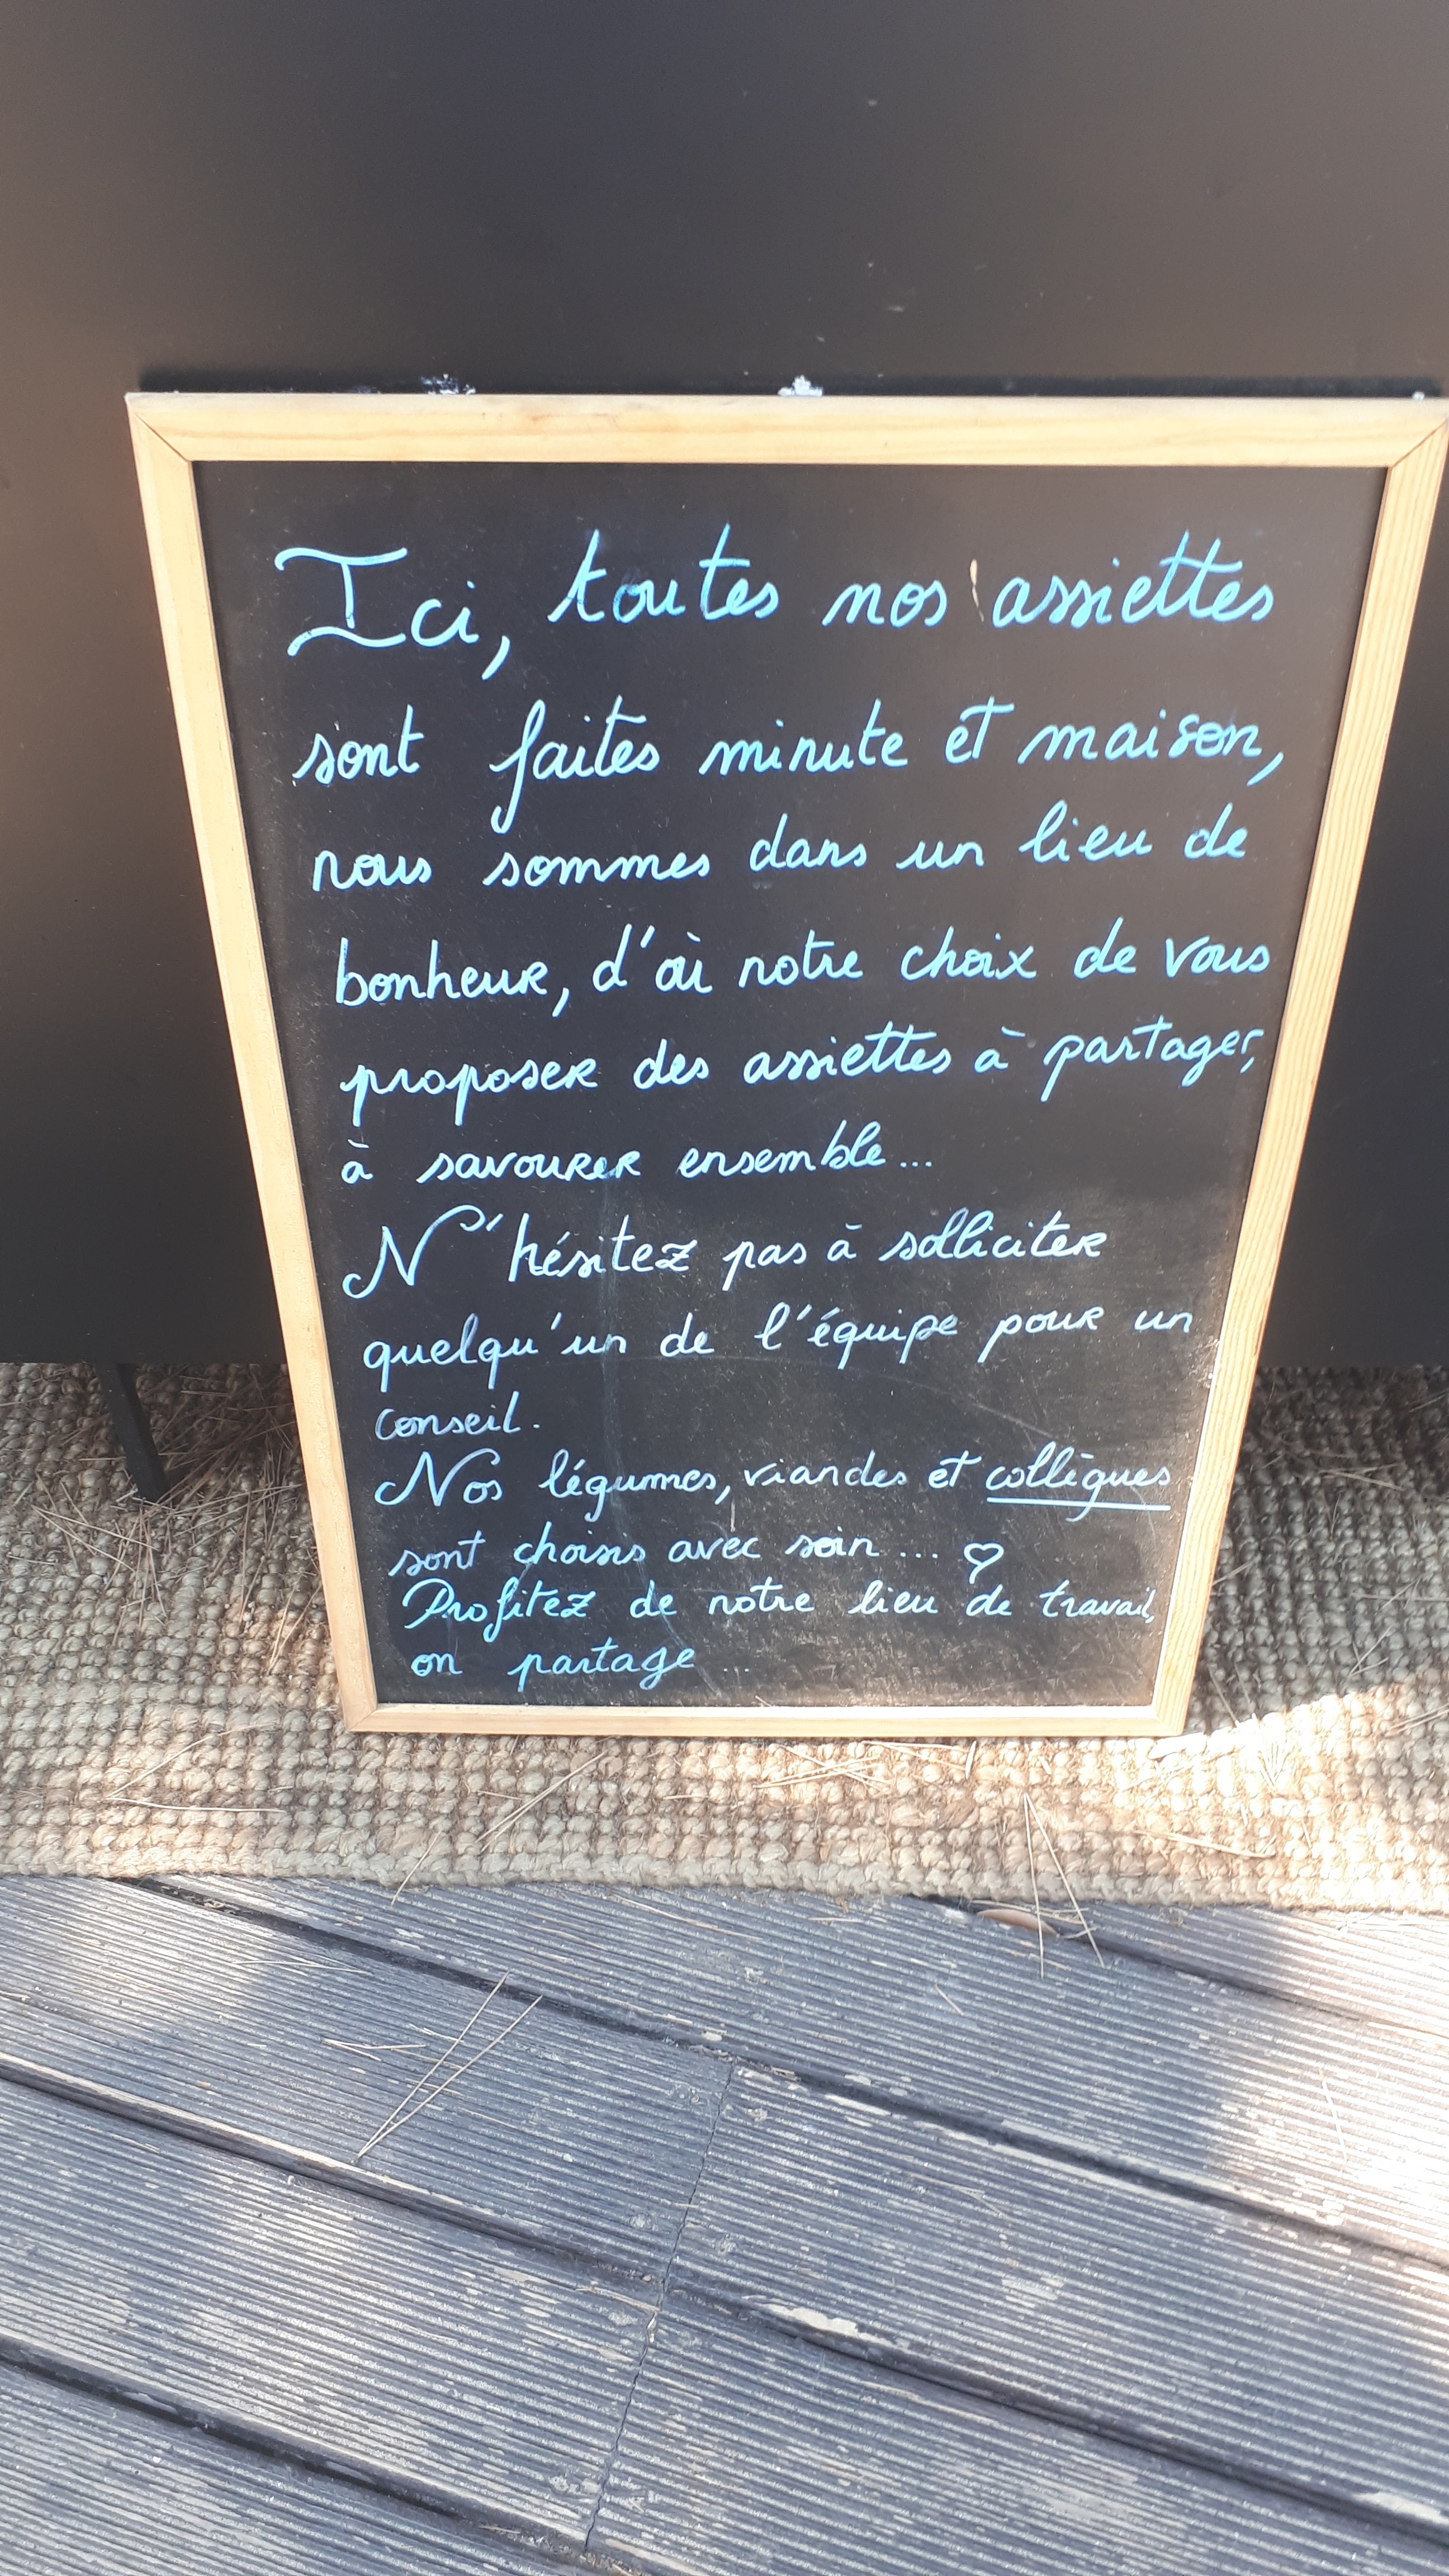 Ici, toutes nos assiettes
sont faites minute et maison,
nous sommes dans un lieu de
bonheur, d'où notre choix de vous
proposer des assiettes à partager,
à savourer ensemble...
N'hésitez pas à solliciter
quelqu'un de l'équipe pour un
conseil.
Nos légumes, viandes et collègues
sont choisis avec soin... ♡
Profitez de notre lieu de travail,
on partage...